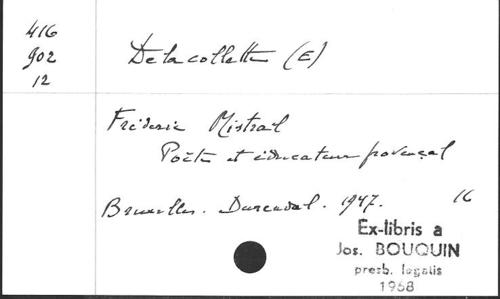 416
902
12
Delacollette (E)
Frédéric Mistral
Poète et éducateur provençal
Bruxelles. Durendal. 1947.
16
Ex-libris a
Jos. BOUQUIN
presb. legalis
1968